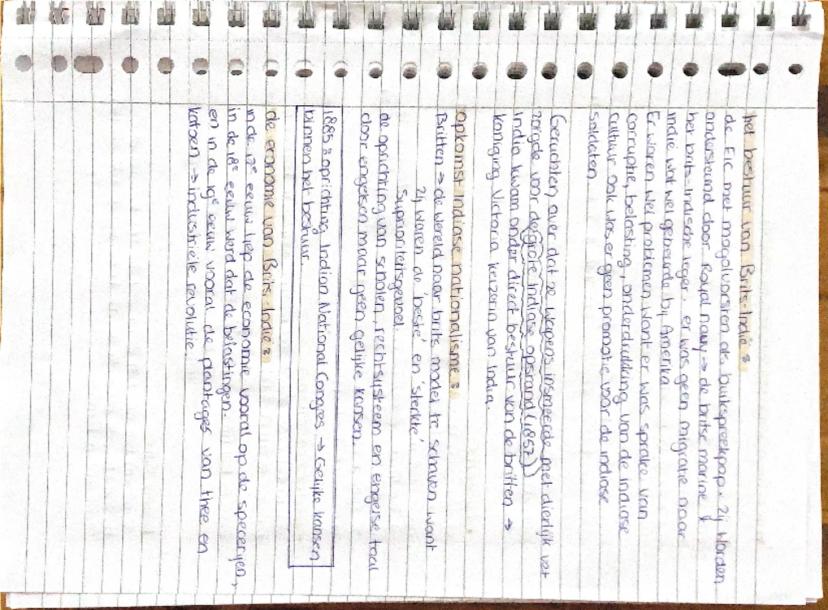 het bestuur van Brits-Indië :
de EIC met mogolvorsten als buikspreekpop. Zij worden
ondersteund door Royal navy → de britse marine &
het brits-indische leger. er was geen migratie naar
indië wat wel gebeurde bij Amerika
Er waren wel problemen want er was sprake van
corruptie, belasting, onderdukking van de indiase
cultuur ook was er geen promotie voor de indiase
soldaten.
Geruchten over dat ze wapens insmeerde met dierlijk vet
zorgde voor de grote indiase opstand (1857)
India kwam onder direct bestuur van de britten →
koningin Victoria keizerin van India.
opkomst indiase nationalisme :
Britten → de wereld naar brits model te schaven want
zij waren de 'beste' en 'sterkte'
Superioriteitsgevoel.
de oprichting van scholen, rechtsysteem en engelse taal
door engelsen maar geen gelijke kansen.
1885 : oprichting Indian National Congres → Gelijke kansen
binnen het bestuur.
de economie van Brits-Indië :
in de 17e eeuw liep de economie vooral op de specerijen,
in de 18e eeuw werd dat de belastingen.
en in de 19e eeuw vooral de plantages van thee en
katoen → industriële revolutie.